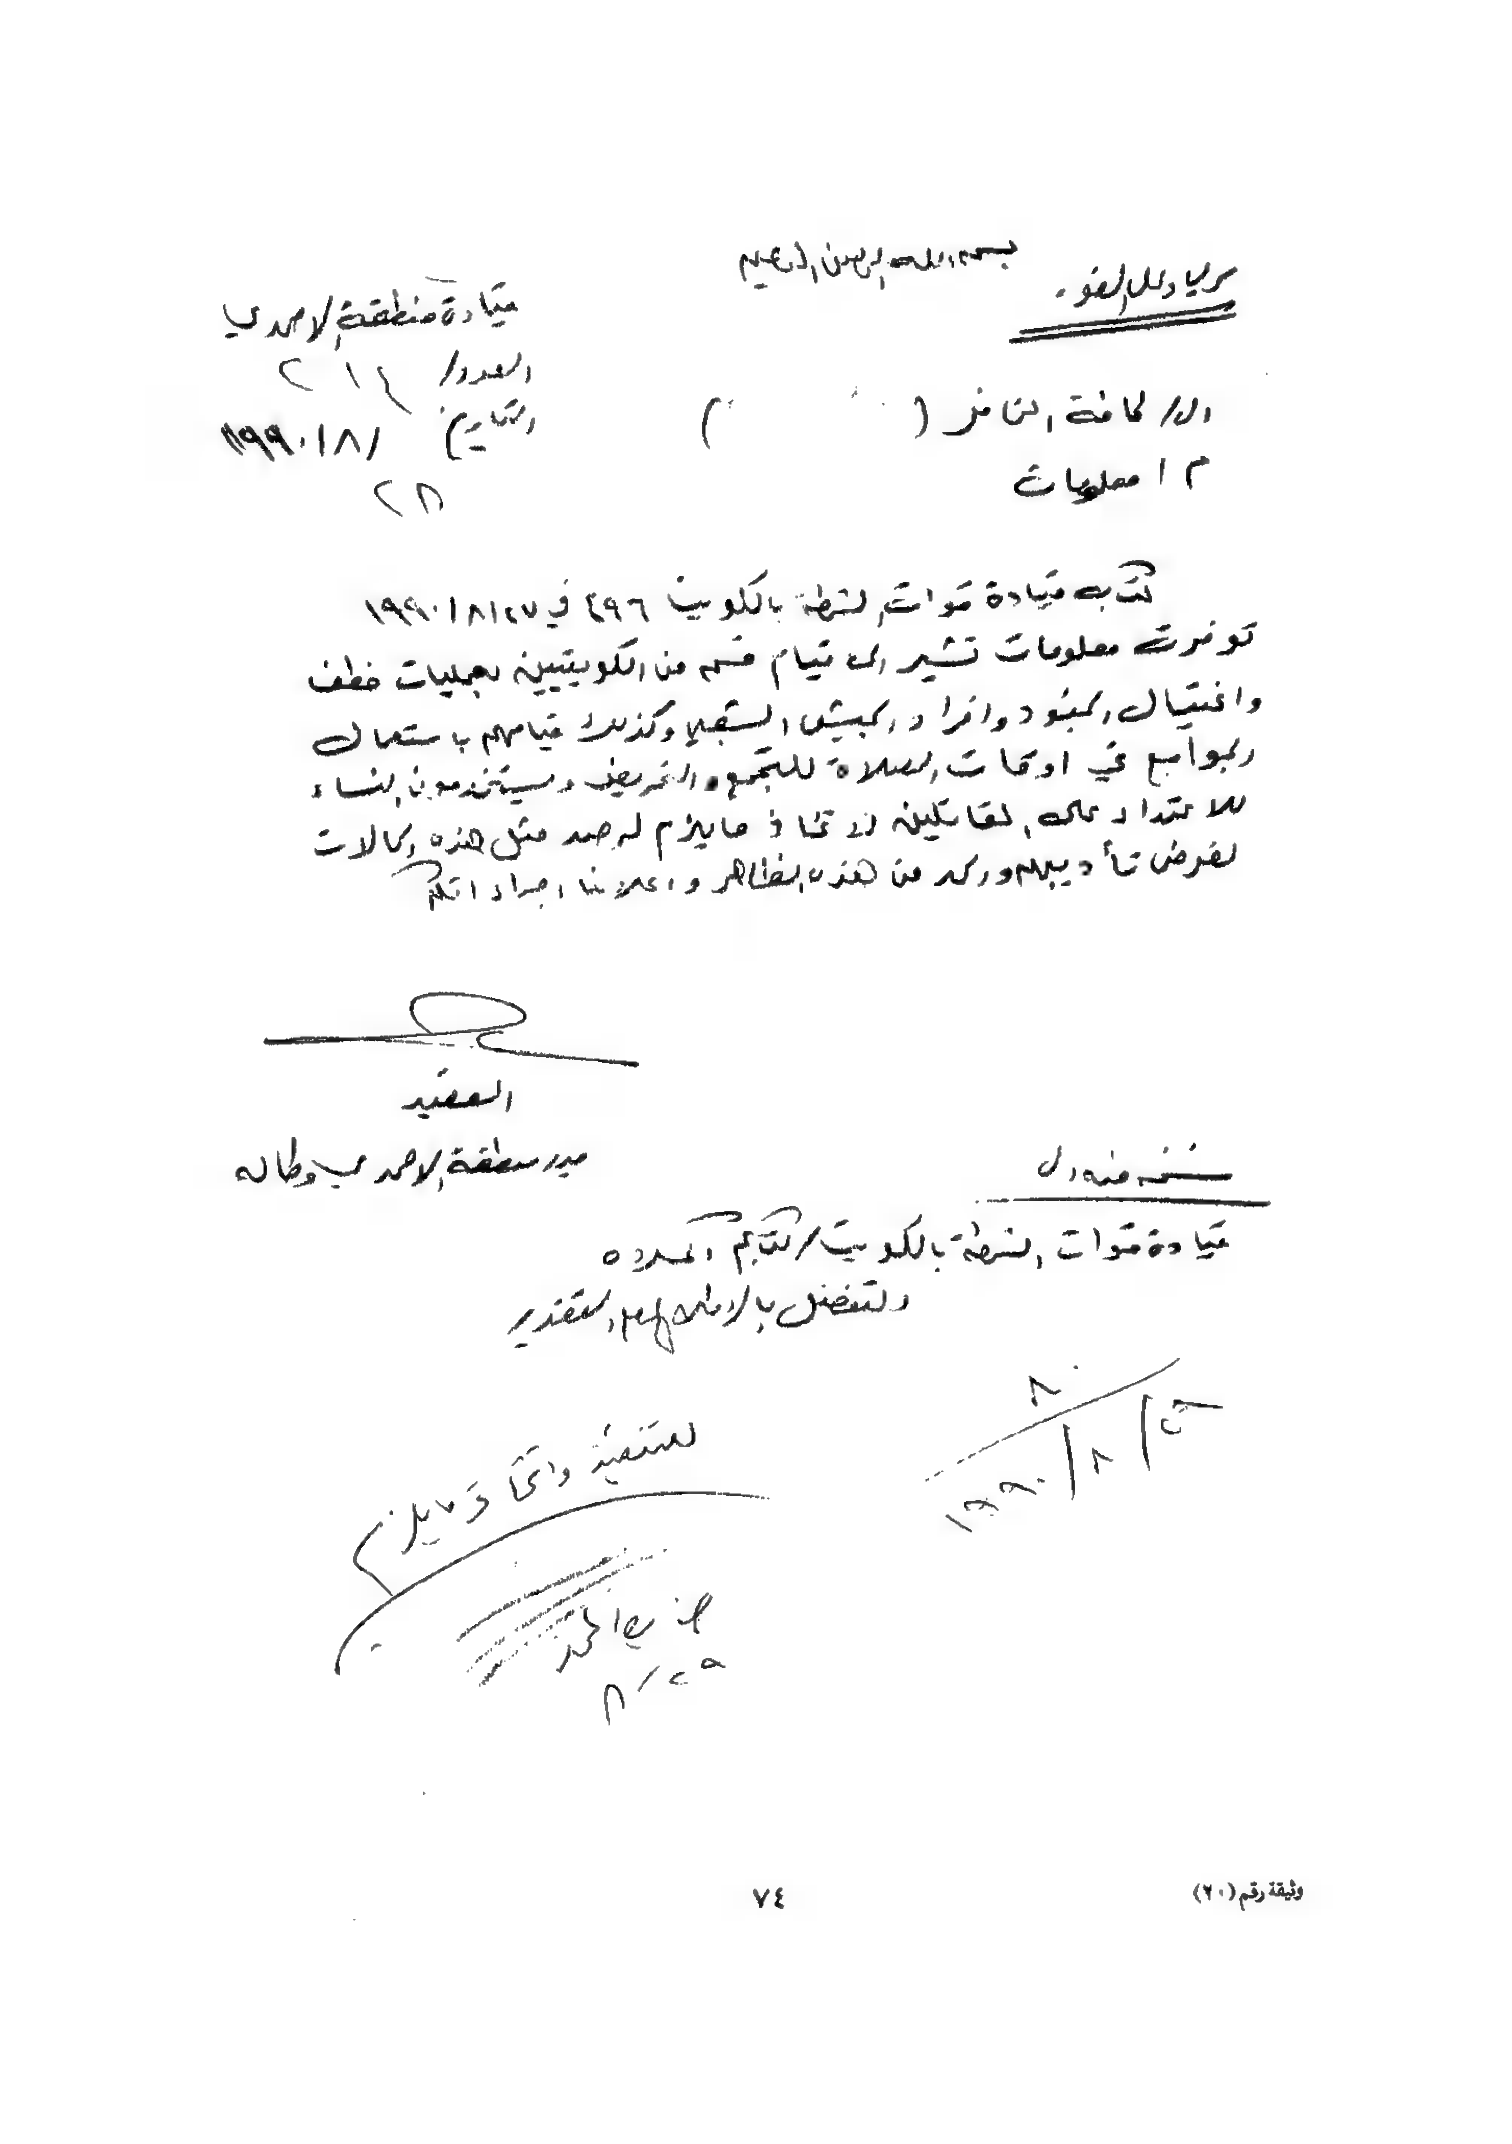 بسم الله الرحمن الرحيم
سري وعلى الفور
قيادة منطقة الاحمدي
العدد / ٢١٤
التاريخ / ٨ / ١٩٩٠
٢٨
الى / كافة المخافر ( )
م / معلومات
كتاب قيادة قوات الشرطة بالكويت ٤٩٦ في ٢٧ / ٨ / ١٩٩٠
توفرت معلومات تشير الى قيام قسم من الكويتيين بعمليات خطف
واغتيال الجنود وافراد الجيش الشعبي وكذلك قيامهم باستعمال
الجوامع في اوقات الصلاة للتجمع والتحريض ويستخدمون النساء
للاعتداء على المقاتلين لاتخاذ مايلزم لرصد مثل هذه الحالات
لغرض تأديبهم والحد من هذه الظاهر واعلامنا اجراءاتكم
العقيد
مدير منطقة الاحمدي وكالة
نسخه منه الى
قيادة قوات الشرطة بالكويت / كتابكم اعلاه
للتفضل بالاطلاع مع التقدير
٨٠
٢٩ / ٨ / ١٩٩٠
للتنفيذ واتخاذ مايلزم
٢٩ / ٨
٧٤
وثيقة رقم (٢٠)